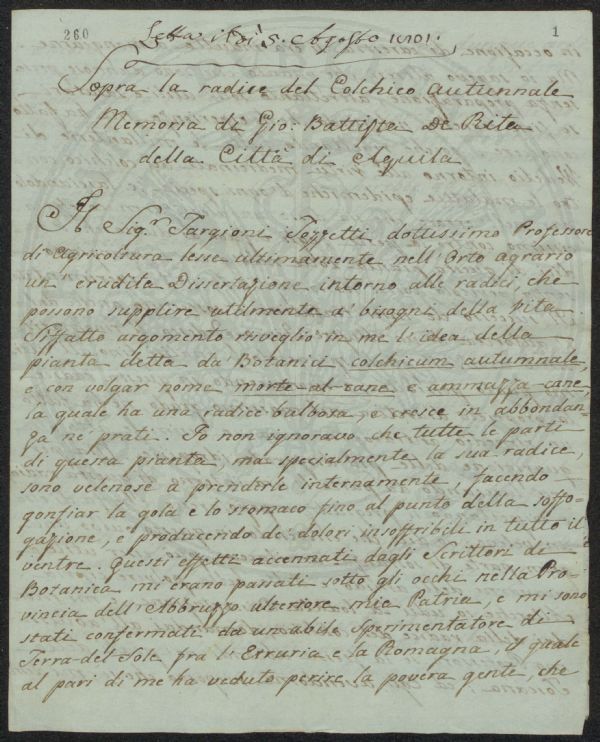 260
1
Letta il dì 5. Agosto 1801.
Sopra la radice del Colchico autunnale
Memoria di Gio: Battista De Rita
della Città di Aquila
Il Sig.r Targioni Tozzetti dottissimo Professore
di Agricoltura lesse ultimamente nell'Orto agrario
un erudita Dissertazione intorno alle radici, che
possono supplire utilmente a' bisogni della vita.
Siffatto argomento risvegliò in me l'idea della
pianta detta da' Botanici colchicum autumnale,
e con volgar nome morte-al-cane e ammazza-cane,
la quale ha una radice bulbosa, e cresce in abbondan-
za ne' prati. Io non ignoravo che tutte le parti
di questa pianta, ma specialmente la sua radice,
sono velenose a prenderle internamente, facendo
gonfiar la gola e lo stomaco fino al punto della soffo-
gazione, e producendo de' dolori insoffribili in tutto il
ventre. Questi effetti accennati dagli Scrittori di
Botanica mi erano passati sotto gli occhi nella Pro-
vincia dell'Abbruzzo ulteriore mia Patria, e mi sono
stati confermati da un abile Sperimentatore di
Terra-del-Sole fra l'Etruria e la Romagna, il quale
al pari di me ha veduto perire la povera gente, che